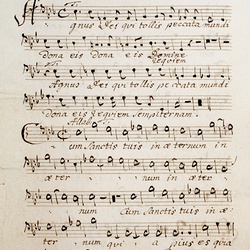 Agnus Dei qui tollis peccata mundi
dona eis dona eis Domine
requiem
Agnus Dei qui tollis peccata mundi
dona eis requiem sempiternam.
cum Sanctis tuis in æternum in
æ ter num in æ ter
num cum Sanctis tuis in æ
ter num qui a pius es qui a